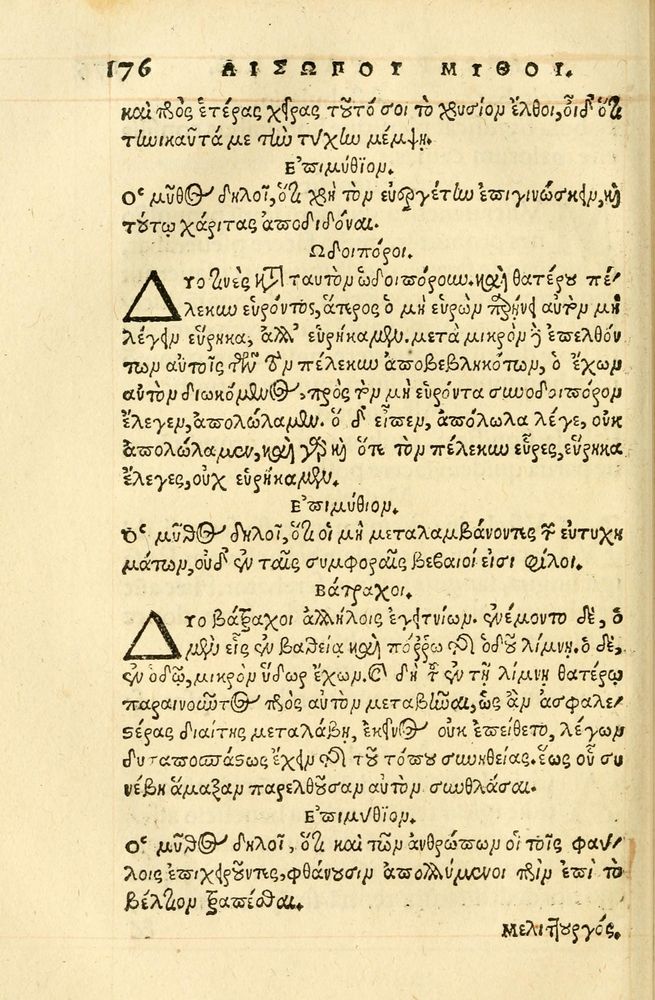 176 ΑΙΣΩΠΟΥ ΜΥΘΟΙ.
καὶ πρὸς ἑτέρας χεῖρας τοῦτό σοι τὸ χρυσίον ἔλθοι, οἶδ' ὅτι
τηνικαῦτά με τὴν τύχην μέμψῃ.
Ἐπιμύθϊον.
Ὁ μῦθος δηλοῖ, ὅτι χρὴ τὸν εὐεργέτην ἐπιγινώσκειν, καὶ
τούτῳ χάριτας ἀποδιδόναι.
Ὡδοιπόροι.
Δύο τινὲς κατὰ ταυτὸν ὡδοιπόρουν. καὶ θατέρου πέ-
λεκυν εὑρόντος, ἅτερος ὁ μὴ εὑρὼν παρῄνει αὐτὸν μὴ
λέγειν εὕρηκα, ἀλλ' εὑρήκαμεν. μετὰ μικρὸν δὲ ἐπελθόν
των αὐτοῖς τῶν τὸν πέλεκυν ἀποβεβληκότων, ὁ ἔχων
αὐτὸν διωκόμενος, πρὸς τὸν μὴ εὑρόντα συνοδοιπόρον
ἔλεγεν, ἀπολώλαμεν. ὁ δ' εἶπεν, ἀπόλωλα λέγε, οὐκ
ἀπολώλαμεν, καὶ γὰρ καὶ ὅτε τὸν πέλεκυν εὗρες, εὕρηκα
ἔλεγες, οὐχ εὑρήκαμεν.
Ἐπιμύθιον.
Ὁ μῦθος δηλοῖ, ὅτι οἱ μὴ μεταλαμβάνοντες τῶν εὐτυχη
μάτων, οὐδ' ἐν ταῖς συμφοραῖς βέβαιοί εἰσι φίλοι.
Βάτραχοι.
Δύο βάτραχοι ἀλλήλοις ἐγειτνίων. ἐνέμοντο δὲ, ὁ
μὲν εἷς ἐν βαθείᾳ καὶ πόῤῥω τῆς ὁδοῦ λίμνῃ. ὁ δὲ,
ἐν ὁδῷ, μικρὸν ὕδωρ ἔχων. καὶ δὴ τοῦ ἐν τῇ λίμνῃ θατέρῳ
παραινοῦντος πρὸς αὐτὸν μεταβῆναι, ὡς ἂν ἀσφαλε-
στέρας διαίτης μεταλάβῃ, ἐκεῖνος οὐκ ἐπείθετο, λέγων
δυσαποσπάστως ἔχειν τῆς τοῦ τόπου συνηθείας. ἕως οὗ συ
νέβη ἅμαξαν παρελθοῦσαν αὐτὸν συνθλάσαι.
Ἐπιμύθϊον.
Ὁ μῦθος δηλοῖ, ὅτι καὶ τῶν ἀνθρώπων οἱ τοῖς φαύ-
λοις ἐπιχειροῦντες, φθάνουσιν ἀπολλύμενοι πρὶν ἐπὶ τὸ
βέλτιον τραπέσθαι.
Μελιτουργός.